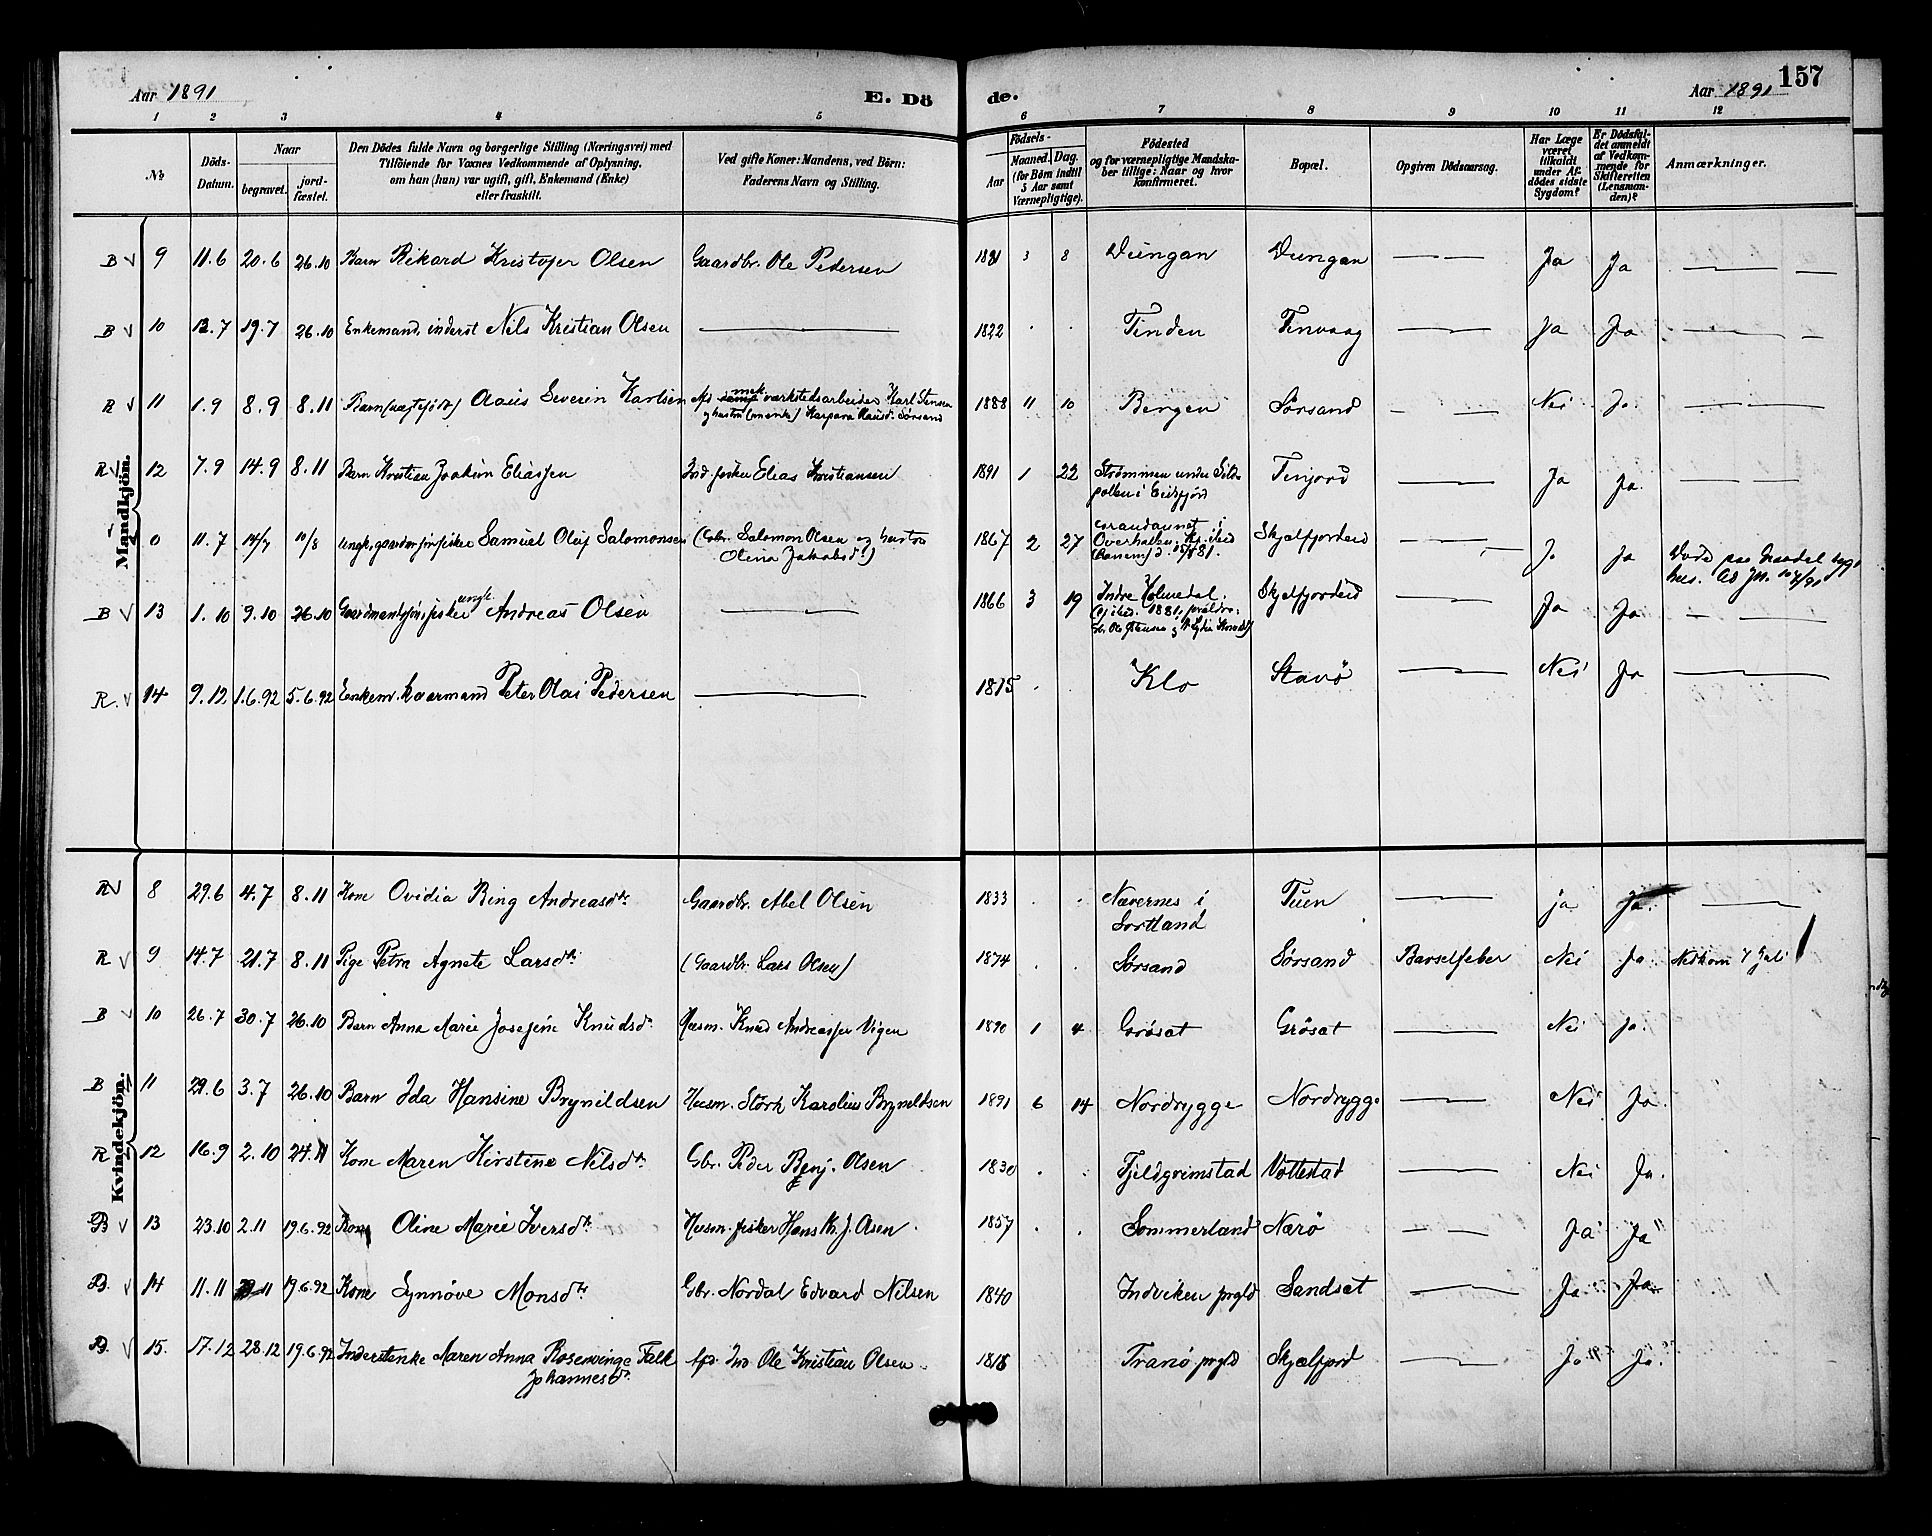 Aar 1891 E. Dö de. Aar 1891 157
1 2 3 4 5 6 7 8 9 10 11 12
No
Döds-Datum.
Naar
begravet.
jord-fæstet.
Den Dödes fulde Navn og borgerlige Stilling (Næringsvei) med
Tilföiende for Voxnes Vedkommende af Oplysning.
om han (hun) var ugift, gift, Enkemand (Enke)
eller fraskilt.
Ved gifte Koner: Mandens, ved Börn:
Faderens Navn og Stilling.
Födsels-
Aar
Maaned. Dag.
(for Börn indtil
5 Aar samt
Værnepligtige).
Födested
og for værnepligtige Mandska-
ber tillige: Naar og hvor
konfirmeret.
Bopæl.
Opgiven Dödsaarsag.
Har Læge
været
tilkaldt
under Af-
dödes sidste
Sygdom?
Er Dödsfal-
det anmeldt
af Vedkom-
mende for
Skifteretten
(Lensman-
den)?
Anmærkninger.
Mandkjön.
B 9 11.6 20.6 26.10 Barn Rikard Kristofer Olsen Gaardbr. Ole Pedersen 1891 3 8 Dungan Dungan Ja Ja
B 10 12.7 19.7 26.10 Enkemand, inderst Nils Kristian Olsen 1822 Tinden Finvaag Ja Ja
R 11 1.9 8.9 8.11 Barn (uægtefødt) Olaus Severin Karlsen Afd. mek. værkstedsarbeider Karl
1888 11 10 Bergen Sörsand Nei Ja
R 12 7.9 14.9 8.11 Barn Kristian Joakim Eliassen Ind. fisker Elias Kristiansen 1891 1 22 Strömmen under
i Eidsfjord Finjord Ja Ja
0 11.7 14/7 10/8 ungk, fisker Samuel Olaf Salomonsen (Gbr. Salomon Olsen og hustru
Olina Jakobsd.) 1867 2 27 Overhallen Skjelfjordeid Ja Ja Døde paa
B 13 1.10 9.10 26.10 Gaardmandssön, fisker ungk. Andreas Olsen 1866 3 19 Indre Holmedal. Skjelfjordeid Ja Ja
R. 14 9.12 1.6.92 5.6.92 Enkem. kaarmand Peter Olai Pedersen 1815 Klo Stavö Nei Ja
Kvindekjön.
R 8 29.6 4.7 8.11 Kone Ovidia Ring Andreasdtr. Gaardbr. Abel Olsen 1833 Nævernes i
Sortland Tuen ja ja.
R 9 14.7 21.7 8.11 Pige Petra Agnete Larsdtr. (Gaardbr. Lars Olsen) 1874 Sörsand Sörsand Barselfeber Nei Ja Nedkom 7 Juli
B 10 26.7 30.7 26.10 Barn Anna Marie Josefine Knudsd. Husm. Knud Andreassen Vigen 1890 1 4 Grösat Grösat Nei Ja.
B 11 29.6 3.7 26.10 Barn Ida Hansine Brynildsen Husm. Störk Karolius Bryneldsen 1891 6 14 Nordrygge Nordrygge Nei Ja.
R 12 16.9 2.10 24.11 Kone Maren Kirstene Nilsdtr. Gbr. Peder Benj. Olsen 1830 Fjeldgrimstad Vottestad Nei Ja.
B 13 23.10 2.11 19.6.92 Kone Oline Marie Iversdtr. Husm. fisker Hans Kr. J. Olsen 1857 Sommerland Nærö Ja Ja
B. 14 11.11 19.6.92 Kone Synnöve Monsdtr. Gbr. Nordal Edvard Nilsen 1840 Indviken prgld Sandset Ja Ja
B. 15. 17.12 28.12 19.6.92 Inderstenke Maren Anna Rosenvinge Falk
Johannesdtr. Afd. Ind. Ole Kristian Olsen 1818 Tranö prgld Skjelfjord Ja Ja.